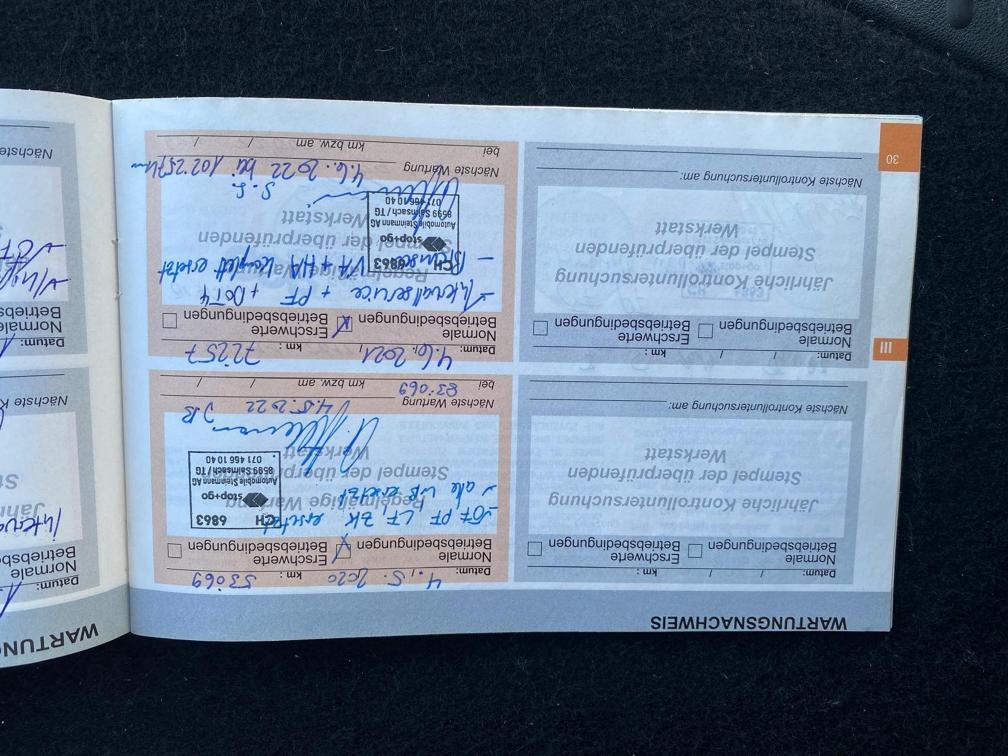 WARTUNGSNACHWEIS
km :
Normale
Betriebsbedingungen
Erschwerte
Betriebsbedingungen
Jährliche Kontrolluntersuchung
Stempel der überprüfenden
Werkstatt
Nächste Kontrolluntersuchung am:
Datum: 4. 5. 2020 km : 53069
Normale
Betriebsbedingungen
Erschwerte
Betriebsbedingungen
ÖF PF LF ZK ersetzt
alle WB ersetzt
Regelmäßige Wartung
Stempel der überprüfenden
Werkstatt
CH 6863
stop+go
Automobile Steinmann AG
8599 Salmsach / TG
071 466 10 40
Nächste Wartung 4.5.2022
bei 83069 km bzw. am
III
Datum: km :
Normale
Betriebsbedingungen
Erschwerte
Betriebsbedingungen
Jährliche Kontrolluntersuchung
Stempel der überprüfenden
Werkstatt
Nächste Kontrolluntersuchung am:
Datum: 4.6.2021 km : 72257
Normale
Betriebsbedingungen
Erschwerte
Betriebsbedingungen
Intervallservice + PF + DOT4
- Bremsen VA + HA komplett ersetzt
Regelmäßige Wartung
Stempel der überprüfenden
Werkstatt
CH 6863
stop+go
Automobile Steinmann AG
8599 Salmsach / TG
071 466 10 40
Nächste Wartung 4.6.2022 bei 102257km
bei km bzw. am
30
WARTUN
Datum:
Normale
Betriebsbed
Jährl
Nächste K
Datum:
Normale
Betriebsbe
Nächste